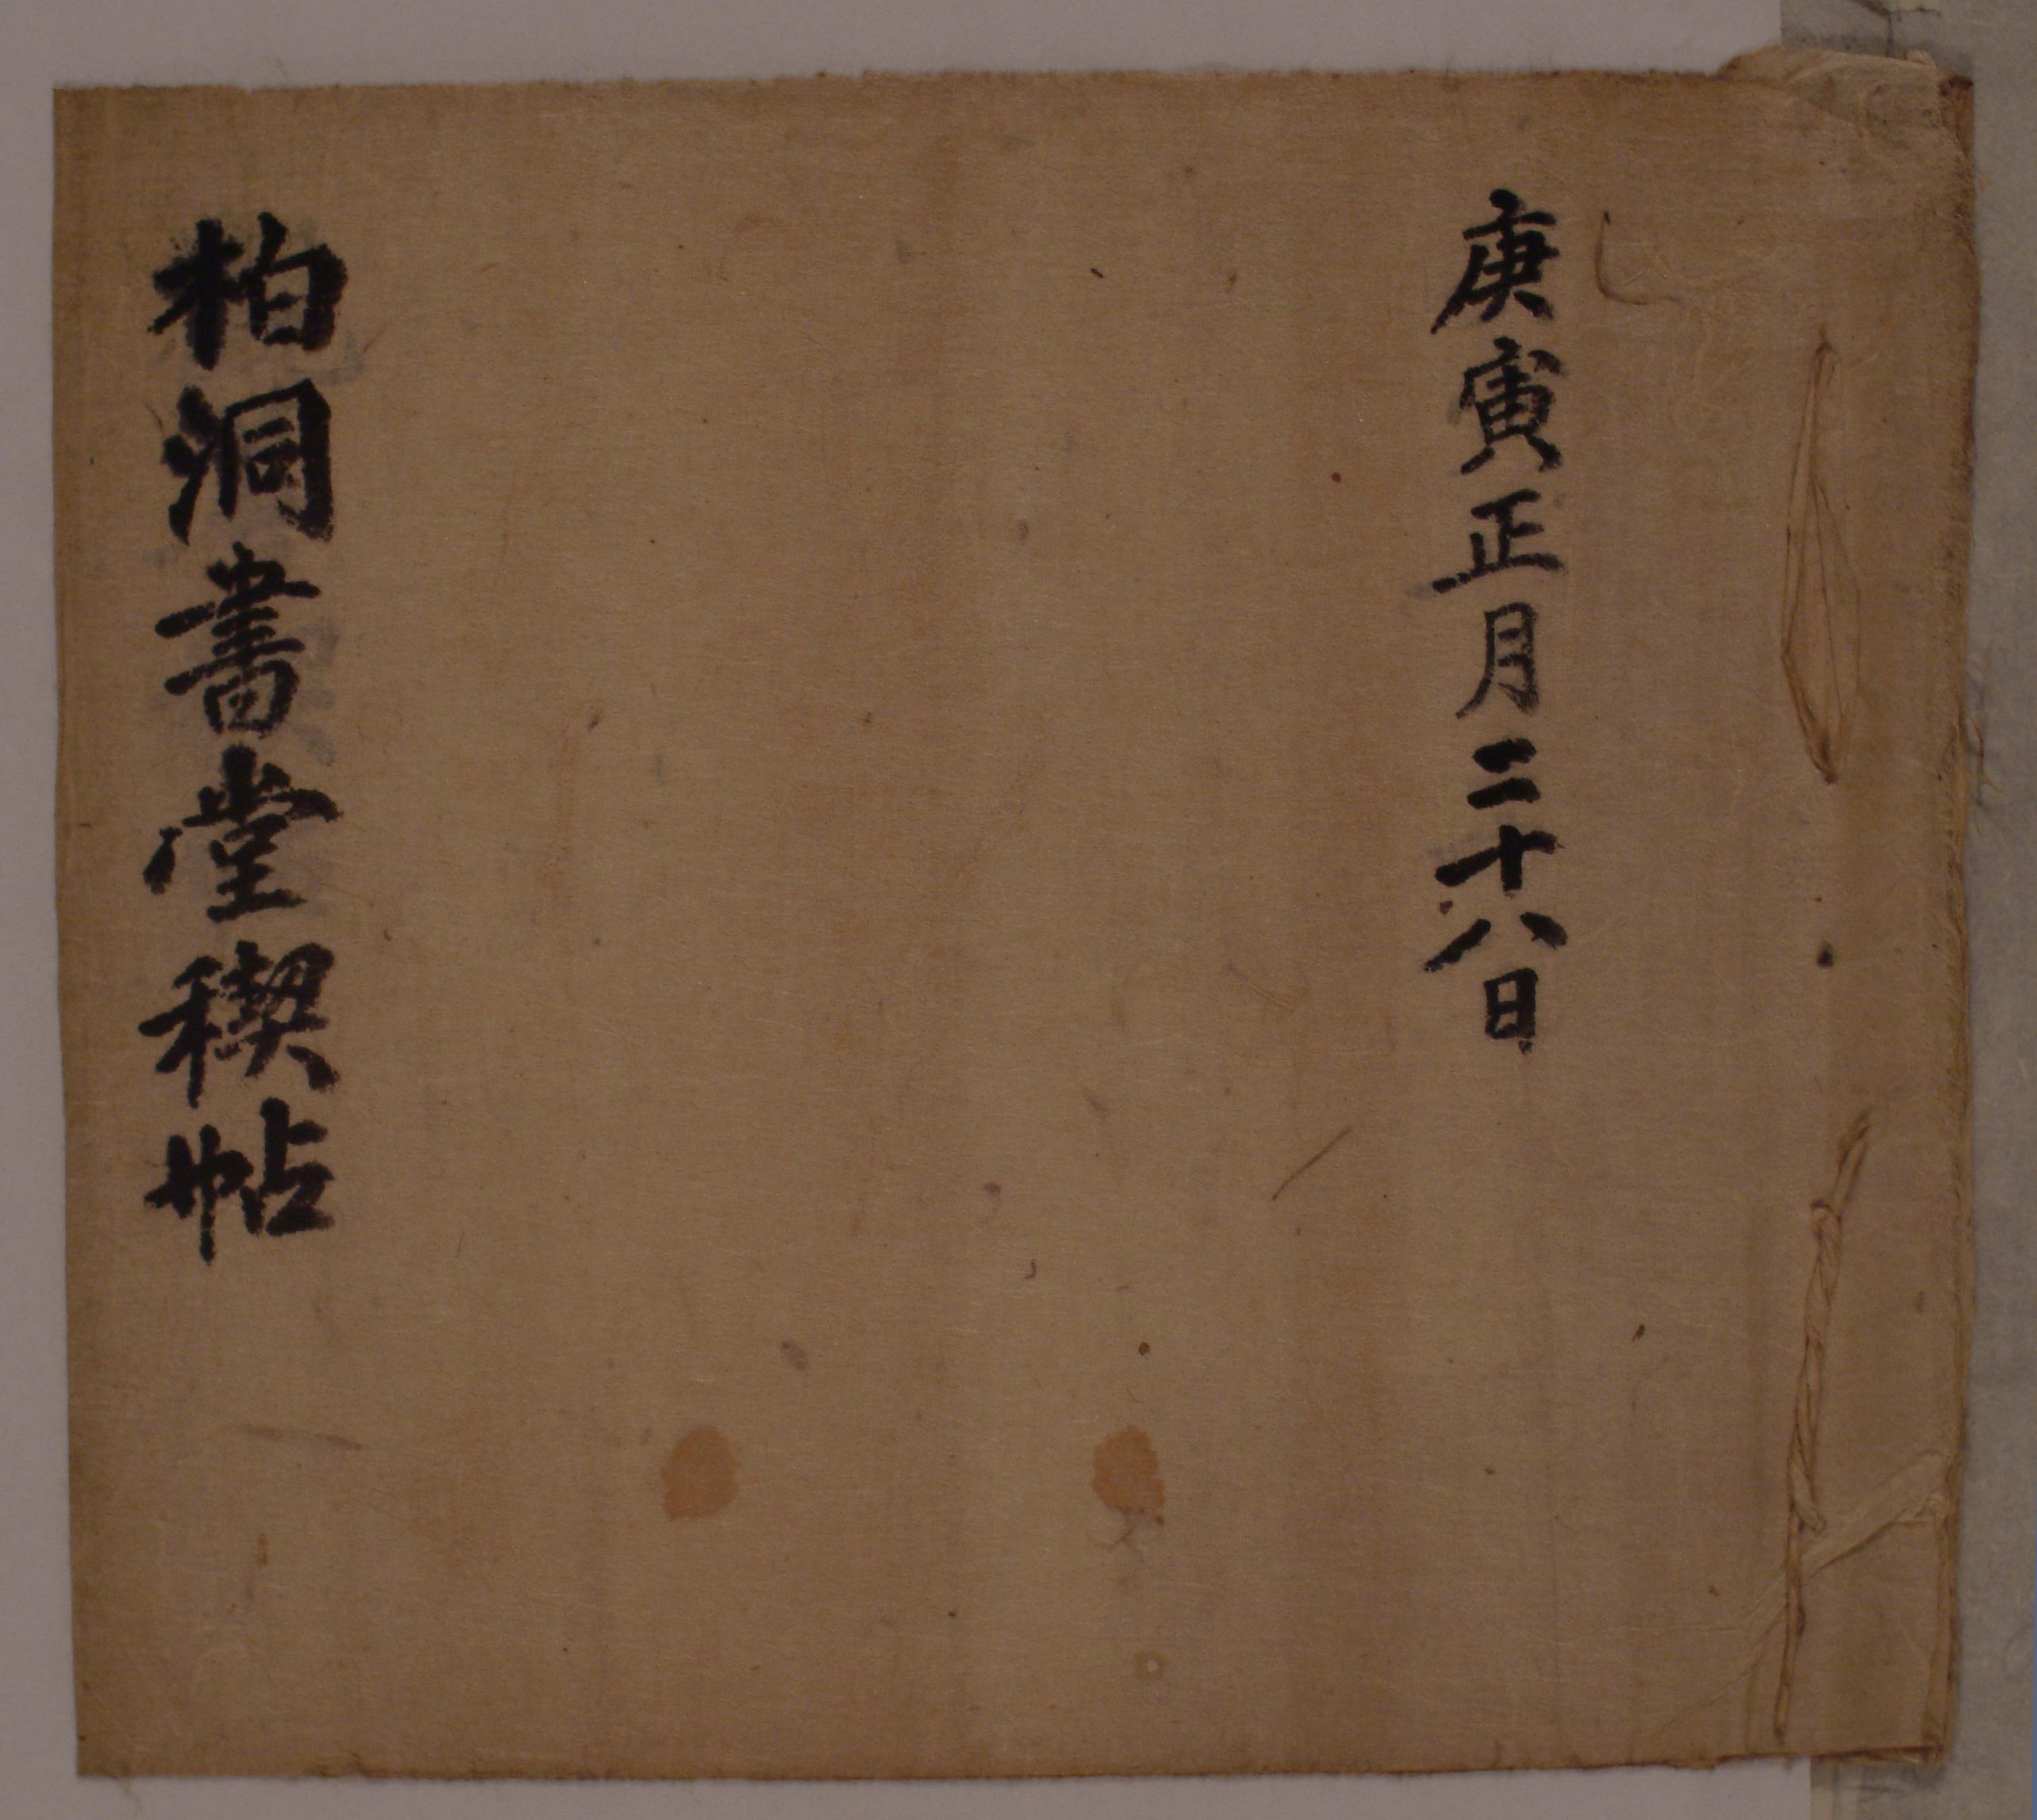 庚寅正月二十八日
柏洞書堂稧帖